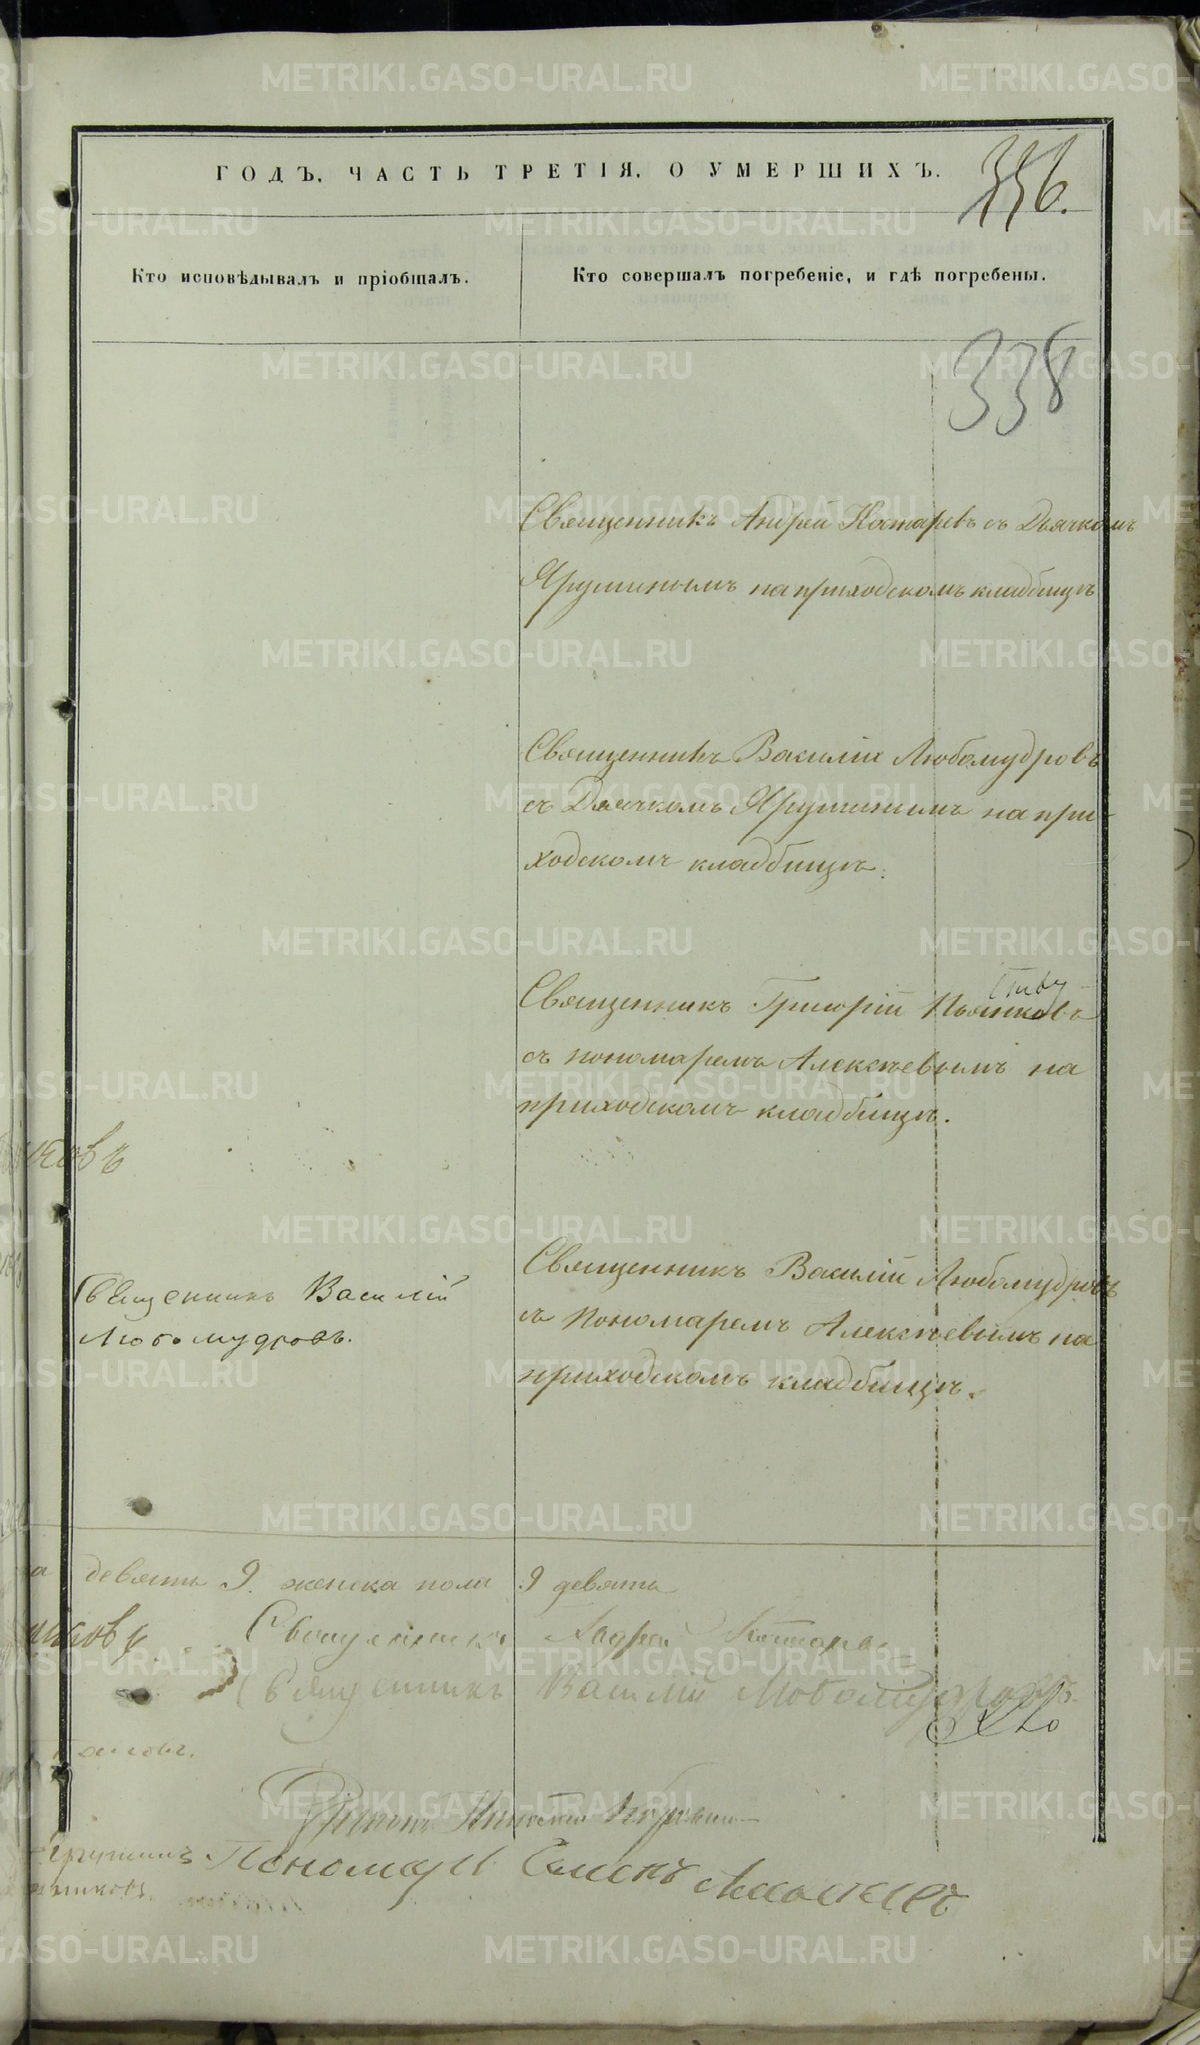 ГОДЪ. ЧАСТЬ ТРЕТІЯ. О УМЕРШИХЪ.
336.
Кто исповѣдывалъ и пріобщалъ.
Кто совершалъ погребеніе, и гдѣ погребены.
338
Священникъ Андрей Костаревъ съ Дьячкомъ
Ярушинымъ на приходскомъ кладбищѣ
Священникъ Василій Любомудровъ
съ Дьячкомъ Ярушинымъ на при-
ходскомъ кладбищѣ.
Священникъ Григорій Пьянковъ
съ пономаремъ Алексѣевымъ на
приходскомъ кладбищѣ.
Священникъ Василій
Любомудровъ.
Священникъ Василій Любомудровъ
съ Пономаремъ Алексѣевымъ на
приходскомъ кладбищѣ.
девять 9. женска пола 9 девять
Священникъ Андрей Костаре
Священникъ Василій Любомудровъ
Пономарь Алексѣевъ
METRIKI.GASO-URAL.RU